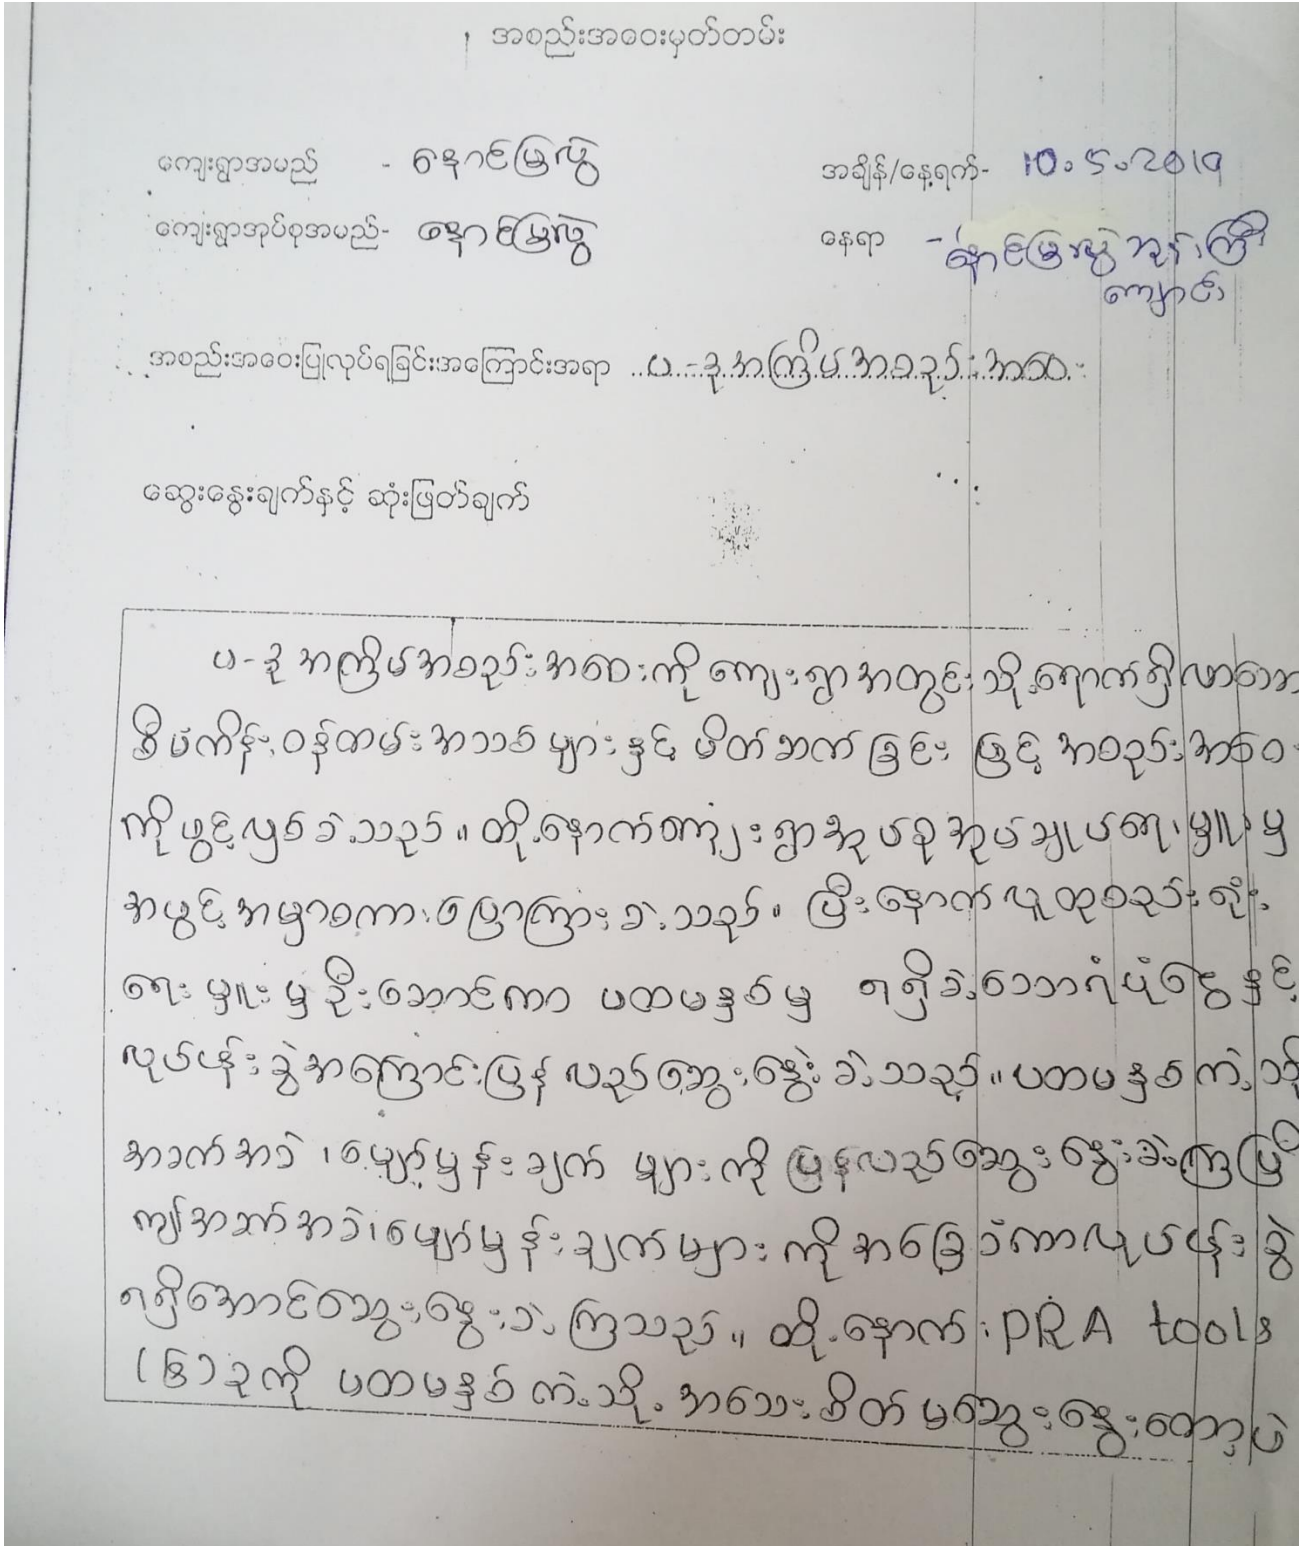 အစည်းအဝေးမှတ်တမ်း
ကျေးရွာအမည် - နောင်မြှလွဲ အချိန်/နေ့ရက်- 10.5.2019
ကျေးရွာအုပ်စုအမည်- နောင်မြှလွဲ နေရာ - နောင်မြှလွဲ ဘုန်းကြီး
ကျောင်း
အစည်းအဝေးပြုလုပ်ရခြင်းအကြောင်းအရာ ပ-ခုအကြိမ်အစည်းအဝေး
ဆွေးနွေးချက်နှင့် ဆုံးဖြတ်ချက်
ပ-ခု အကြိမ်အစည်းအဝေးကို ကျေးရွာအတွင်းသို့ရောက်ရှိလာသော
စီမံကိန်းဝန်ထမ်းအသစ်များနှင့် မိတ်ဆက်ခြင်းဖြင့် အစည်းအဝေး
ကိုဖွင့်လှစ်ခဲ့သည်။ ထို့နောက်ကျေးရွာအုပ်စုအုပ်ချုပ်ရေးမှူးမှ
အဖွင့်အမှာစကားပြောကြားခဲ့သည်။ ပြီးနောက်လူထုစည်းရုံး
ရေးမှူးမှဦးဆောင်ကာ ပထမနှစ်မှ ရရှိခဲ့သောရံပုံငွေနှင့်
လုပ်ငန်းခွဲအကြောင်းပြန်လည်ဆွေးနွေးခဲ့သည်။ ပထမနှစ်ကဲ့သို့
အခက်အခဲ၊ မျှော်မှန်းချက်များကို ပြန်လည်ဆွေးနွေးခဲ့ကြပြီး
အခက်အခဲ၊ မျှော်မှန်းချက်များကိုအခြေခံကာလုပ်ငန်းခွဲ
ရရှိအောင်ဆွေးနွေးခဲ့ကြသည်။ ထို့နောက် PRA tools
(၆)ခုကို ပထမနှစ်ကဲ့သို့ အသေးစိတ်မဆွေးနွေးတော့ပဲ